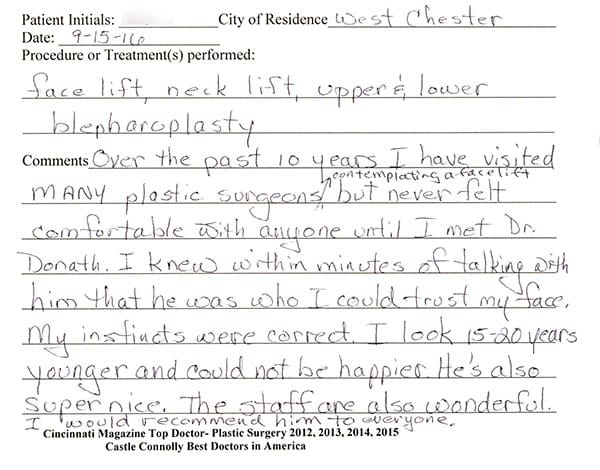 Patient Initials: City of Residence West Chester
Date: 9-15-16
Procedure or Treatment(s) performed:
face lift, neck lift, upper & lower
blepharoplasty
Comments Over the past 10 years I have visited
contemplating a facelift
MANY plastic surgeons, but never felt
comfortable with anyone until I met Dr.
Donath. I knew within minutes of talking with
him that he was who I could trust my face.
My instincts were correct. I look 15-20 years
younger and could not be happier. He's also
super nice. The staff are also wonderful.
I would recommend him to everyone.
Cincinnati Magazine Top Doctor- Plastic Surgery 2012, 2013, 2014, 2015
Castle Connolly Best Doctors in America